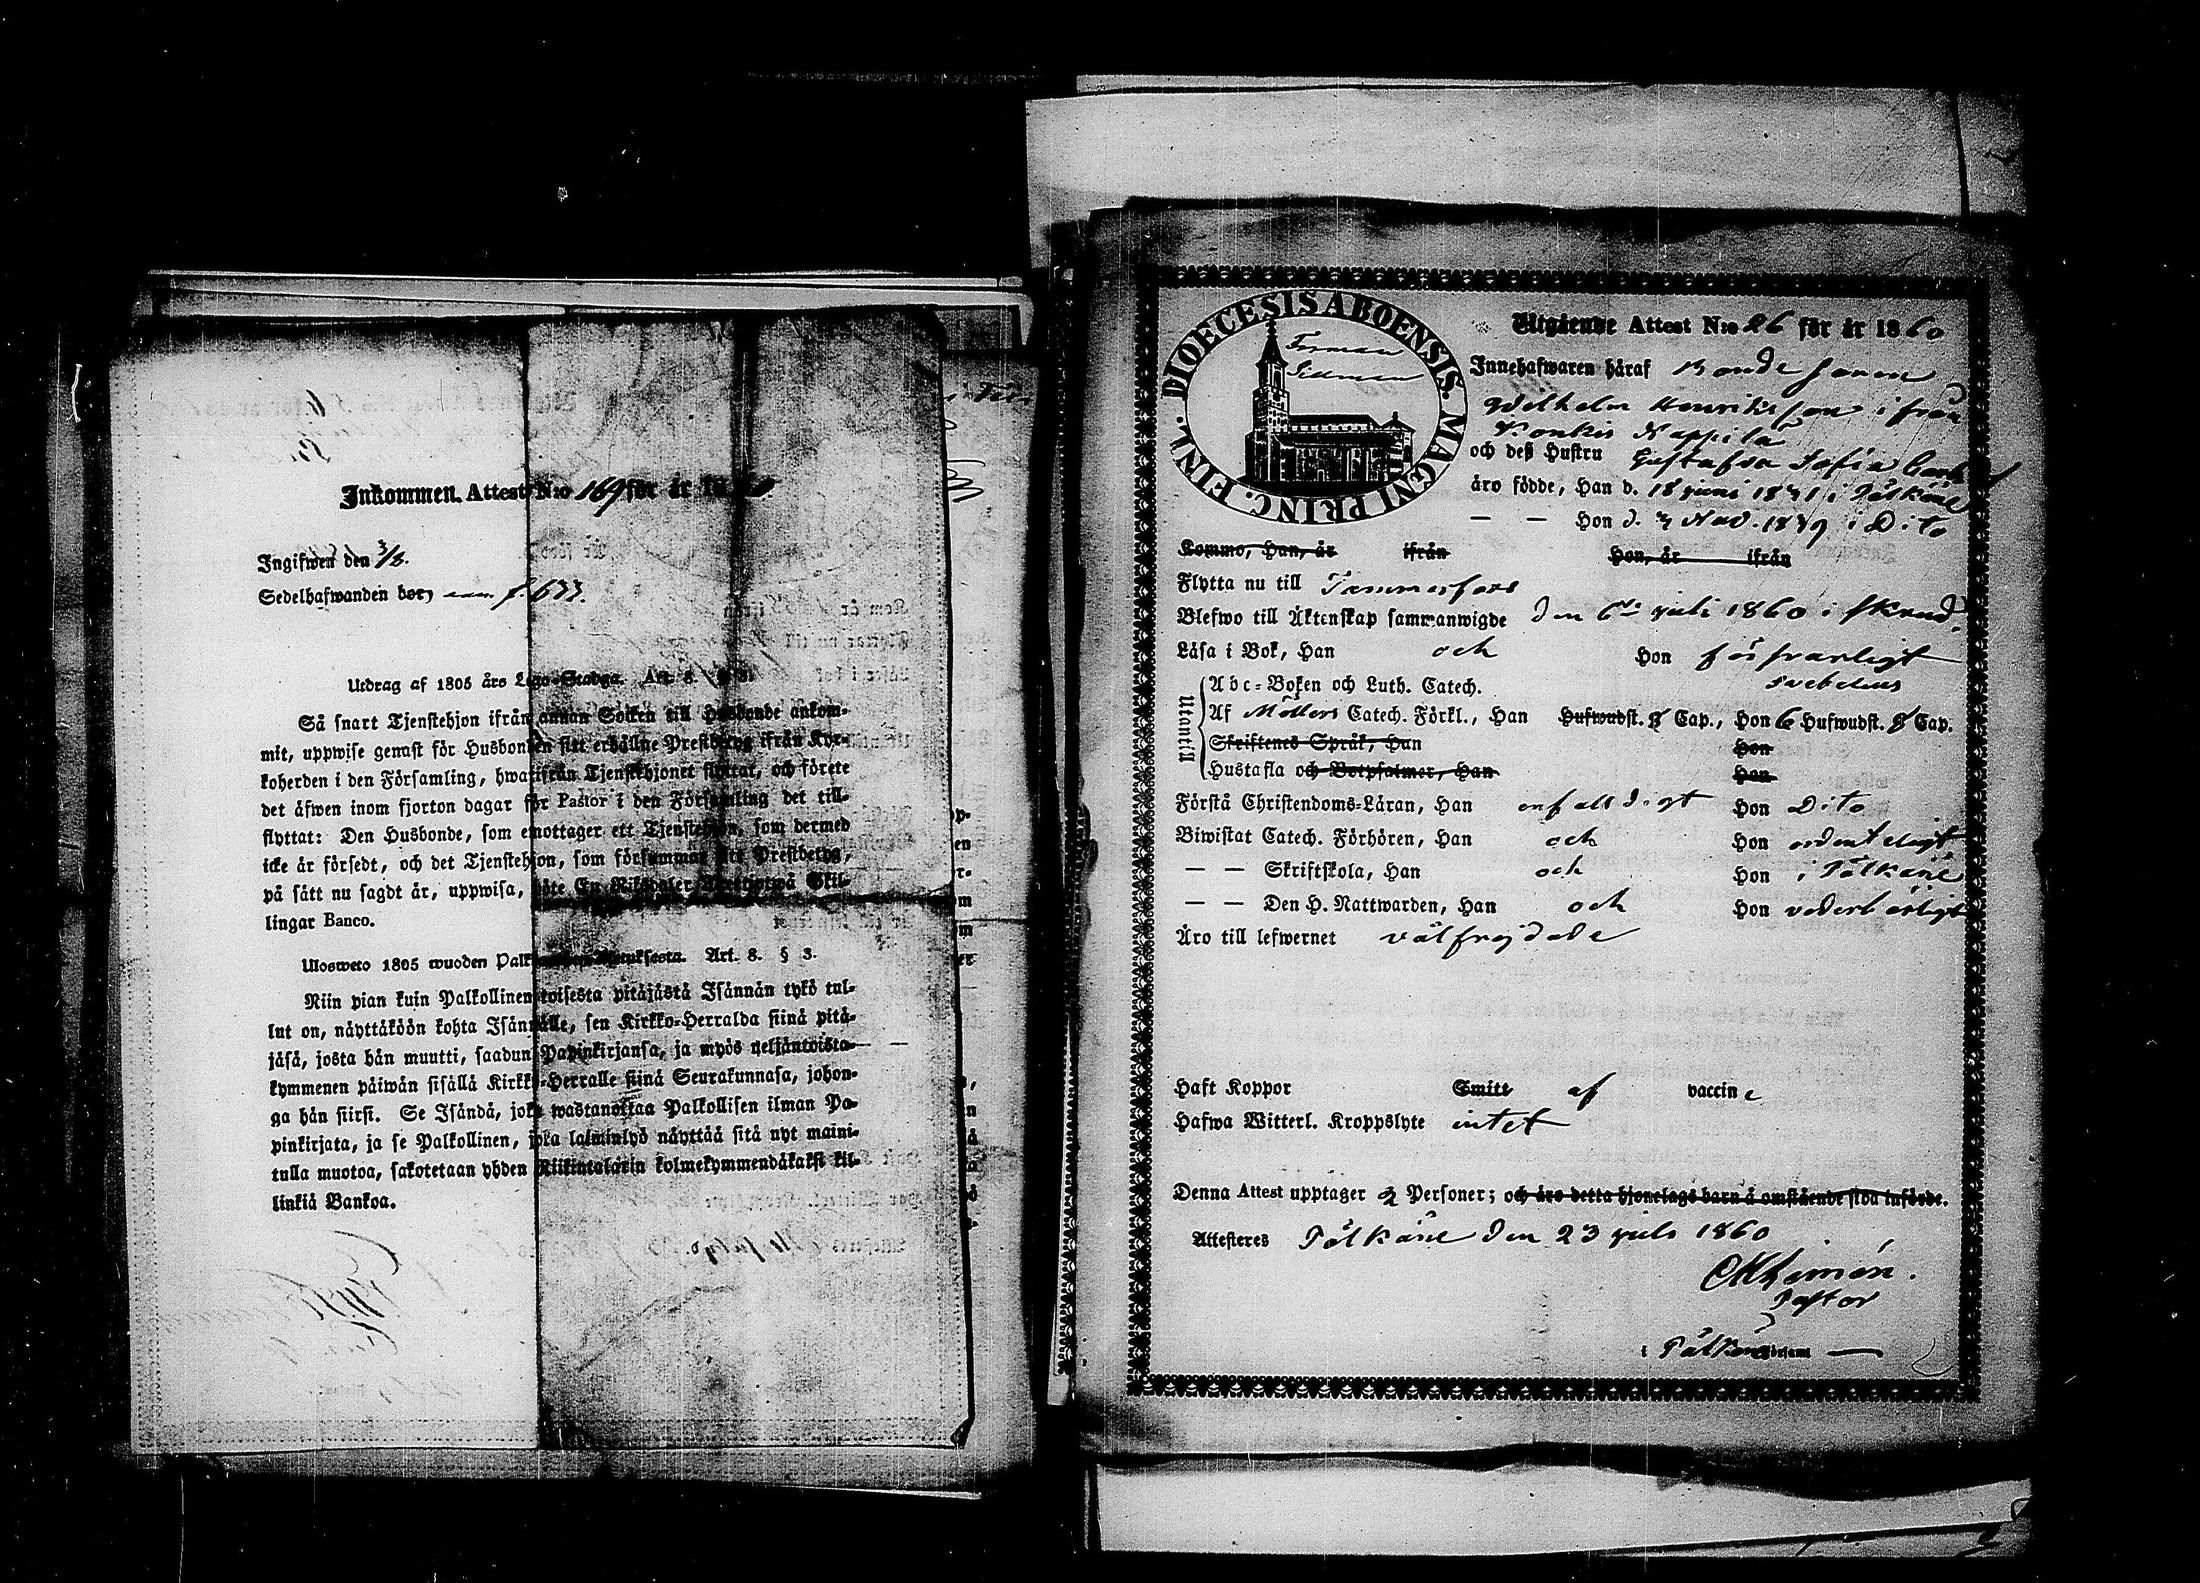 Inkommen Attest N:o 169 för år 18
Ingifwen den 3/8.
Sedelhafwanden f. 633.
Utdrag af 1805 års Lego-Stadga. Art. 8. § 3.
Så snart Tjenstehjon ifrån annan Socken till Husbonde ankom-
mit, uppwise genast för Husbonden sitt erhållne Prestbetyg ifrån Kyr-
koherden i den Församling, hwarifrån Tjenstehjonet flyttat, och förete
det äfwen inom fjorton dagar för Pastor i den Församling det till-
flyttat: Den Husbonde, som emottager ett Tjenstehjon, som dermed
icke är försedt, och det Tjenstehjon, som försummar sitt Prestbetyg,
på sätt nu sagdt är, uppwisa, böte En Riksdaler Trettiotwå Skil-
lingar Banco.
Ulosweto 1805 wuoden Art. 8. § 3.
Niin pian kuin Palkollinen toisesta pitäjästä Isännän tykö tul-
lut on, näyttäköön kohta Isännälle, sen Kirkko-Herralda siinä pitä-
jäsä, josta hän muutti, saadun Papinkirjansa, ja myös neljäntoista-
kymmenen päiwän sisällä Kirkko-Herralle siinä Seurakunnasa, johon-
ga hän siirsi. Se Isändä, joka wastanottaa Palkollisen ilman Pa-
pinkirjata, ja se Palkollinen, joka laiminlyö näyttää sitä nyt maini-
tulla muotoa, sakotetaan yhden Riikintalarin kolmekymmendäkaksi kil-
linkiä Bankoa.
DIOECESIS ABOENSIS. MAGNI PRINC. FINL.
Utgående Attest N:o 26 för år 1860
Innehafwaren häraf Bonde Sonen
Wilhelm Henriksson ifrån
Kappila
och dess Hustru Gustafva Sofia
äro födde, Han d. 18 juni 1831 i Pälkäne
— — Hon d. 3 Nov. 1839 i Dito
Komme, Han, år ifrån Hon, år ifrån
Flytta nu till Tammerfors
Blefwo till Äktenskap sammanwigde den 6te juli 1860 i
Läsa i Bok, Han och Hon försvarligt
Abc-Boken och Luth. Catech. Svebelius
Utantill
Af Möllers Catech. Förkl., Han Hufwudst. 8 Cap., Hon 6 Hufwudst. 8 Cap.
Skriftenes Språk, Han Hon
Hustafla och Botpsalmer, Han Hon
Förstå Christendoms-Läran, Han enfalldigt Hon Dito
Biwistat Catech. Förhören, Han och Hon ordenteligt
— — Skriftskola, Han och Hon i Pälkäne
— — Den H. Nattwarden, Han och Hon vederbörligt
Äro till lefwernet välfrejdade
Haft Koppor Smitt af vaccine
Hafwa Witterl. Kroppslyte intet
Denna Attest upptager 2 Personer; och äro detta hjonelags barn å omstående sida införde.
Attesteres Pälkäne den 23 juli 1860
Pastor
i Pälkäne Församl